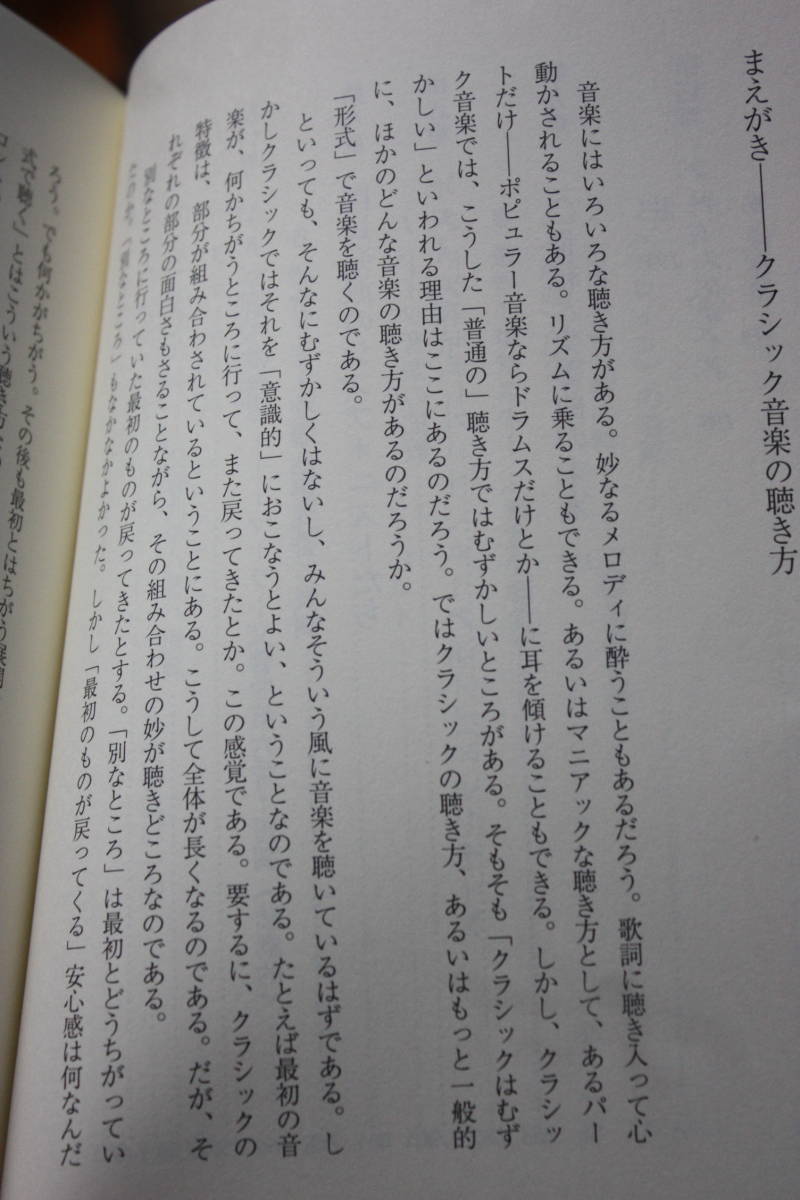 まえがき――クラシック音楽の聴き方
音楽にはいろいろな聴き方がある。妙なるメロディに酔うこともあるだろう。歌詞に聴き入って心
動かされることもある。リズムに乗ることもできる。あるいはマニアックな聴き方として、あるパー
トだけ――ポピュラー音楽ならドラムスだけとか――に耳を傾けることもできる。しかし、クラシッ
ク音楽では、こうした「普通の」聴き方ではむずかしいところがある。そもそも「クラシックはむず
かしい」といわれる理由はここにあるのだろう。ではクラシックの聴き方、あるいはもっと一般的
に、ほかのどんな音楽の聴き方があるのだろうか。
「形式」で音楽を聴くのである。
といっても、そんなにむずかしくはないし、みんなそういう風に音楽を聴いているはずである。し
かしクラシックではそれを「意識的」におこなうとよい、ということなのである。たとえば最初の音
楽が、何かちがうところに行って、また戻ってきたとか。この感覚である。要するに、クラシックの
特徴は、部分が組み合わされているということにある。こうして全体が長くなるのである。だが、そ
れぞれの部分の面白さもさることながら、その組み合わせの妙が聴きどころなのである。
別なところに行っていた最初のものが戻ってきたとする。「別なところ」は最初とどうちがってい
たのか。「別なところ」もなかなかよかった。しかし「最初のものが戻ってくる」安心感は何なんだ
ろう。でも何かがちがう。その後も最初とはちがう展開
式で聴く」とはこういう聴き方